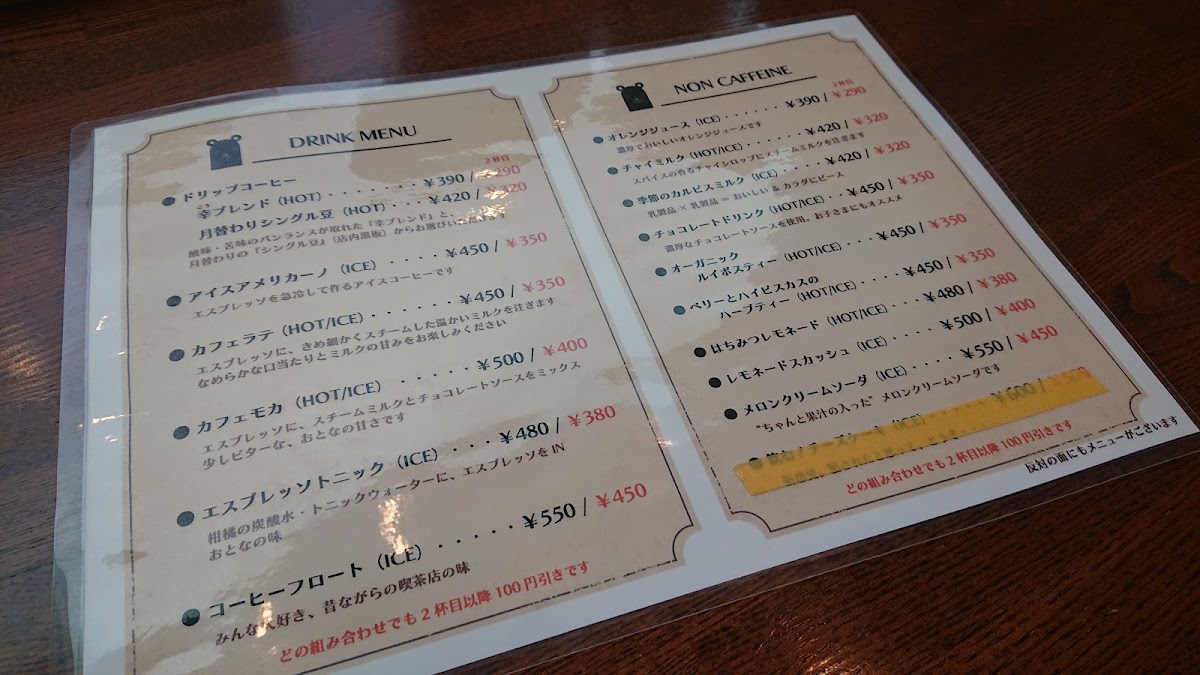 DRINK MENU
2杯目
ドリップコーヒー
幸ブレンド（HOT）・・・・・・・¥390 / ¥290
月替わりシングル豆（HOT）・・・¥420 / ¥320
酸味・苦味のバンランスが取れた「幸ブレンド」と、
月替わりの「シングル豆」（店内黒板）からお選びいただけます
アイスアメリカーノ（ICE）・・・・¥450 / ¥350
エスプレッソを急冷して作るアイスコーヒーです
カフェラテ（HOT/ICE）・・・・・・¥450 / ¥350
エスプレッソに、きめ細かくスチームした温かいミルクを注ぎます
なめらかな口当たりとミルクの甘みをお楽しみください
カフェモカ（HOT/ICE）・・・・・¥500 / ¥400
エスプレッソに、スチームミルクとチョコレートソースをミックス
少しビターな、おとなの甘さです
エスプレッソトニック（ICE）・・・¥480 / ¥380
柑橘の炭酸水・トニックウォーターに、エスプレッソを IN
おとなの味
コーヒーフロート（ICE）・・・・・¥550 / ¥450
みんな大好き、昔ながらの喫茶店の味
どの組み合わせでも 2 杯目以降 100 円引きです
NON CAFFEINE
2杯目
オレンジジュース（ICE）・・・・・¥390 / ¥290
濃厚でおいしいオレンジジュースです
チャイミルク（HOT/ICE）・・・・・・¥420 / ¥320
スパイスの香るチャインロップにスチームミルクを注ぎます
季節のカルピスミルク（ICE）・・・¥420 / ¥320
乳製品 × 乳製品 = おいしい & カラダにピース
チョコレートドリンク（HOT/ICE）・・¥450 / ¥350
濃厚なチョコレートソースを使用。お子さまにもオススメ
オーガニック
ルイボスティー（HOT/ICE）・・・¥450 / ¥350
ベリーとハイビスカスの
ハーブティー（HOT/ICE）・・・¥450 / ¥350
はちみつレモネード（HOT/ICE）・・・¥480 / ¥380
レモネードスカッシュ（ICE）・・・¥500 / ¥400
メロンクリームソーダ（ICE）・・・¥550 / ¥450
“ちゃんと果汁の入った” メロンクリームソーダです
チーズケーキ（ICE）・・・・・¥600 /
どの組み合わせでも 2 杯目以降 100 円引きです
反対の面にもメニューがございます